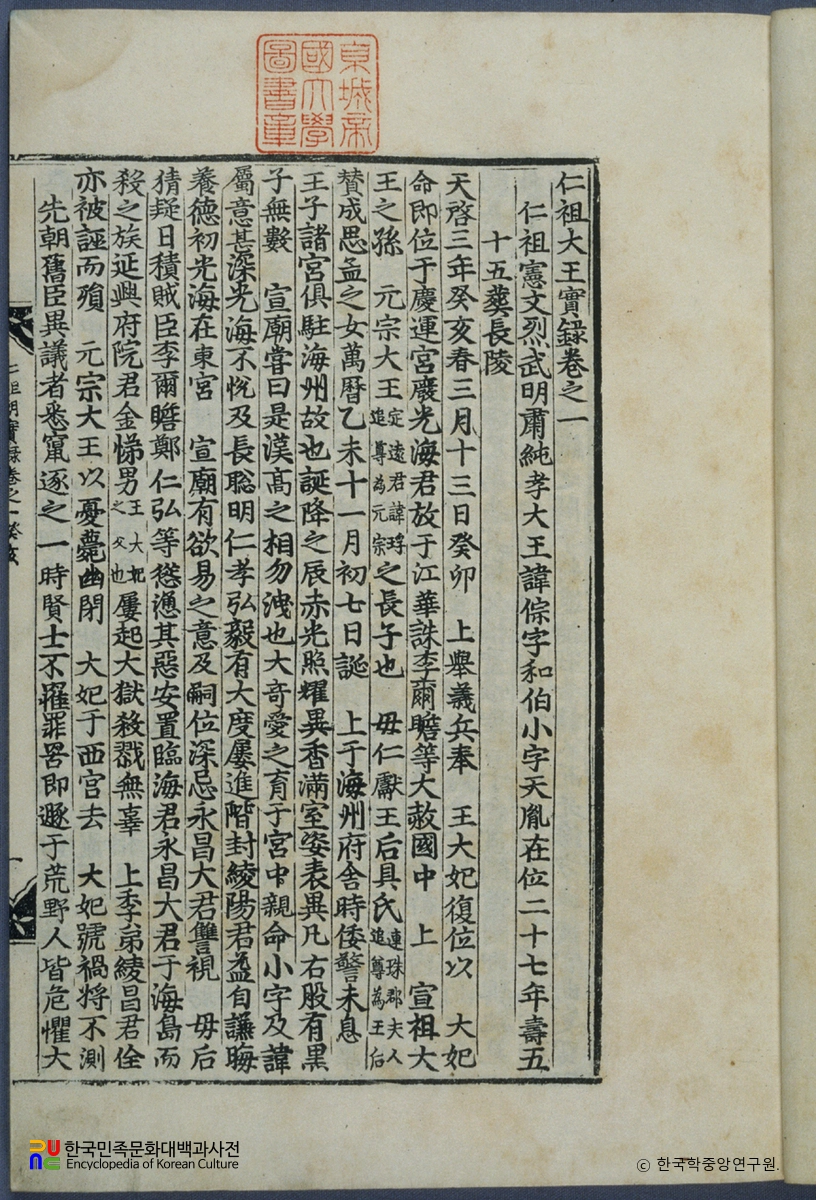 京城帝
國大學
圖書章
仁祖大王實錄卷之一
仁祖憲文烈武明肅純孝大王諱倧字和伯小字天胤在位二十七年壽五
十五葬長陵
天啓三年癸亥春三月十三日癸卯 上擧義兵奉 王大妃復位以 大妃
命即位于慶運宮廢光海君放于江華誅李爾瞻等大赦國中 上 宣祖大
王之孫 元宗大王定遠君諱琈追尊為元宗之長子也 母仁獻王后具氏連珠郡夫人追尊為王后
贊成思孟之女萬曆乙未十一月初七日誕 上于海州府舍時倭警未息
王子諸宮俱駐海州故也誕降之辰赤光照耀異香滿室姿表異凡右股有黑
子無數 宣廟嘗曰是漢高之相勿洩也大奇愛之育于宮中親命小字及諱
屬意甚深光海不悅及長聰明仁孝弘毅有大度屢進階封綾陽君益自謙晦
養德初光海在東宮 宣廟有欲易之意及嗣位深忌永昌大君讐視 母后
猜疑日積賊臣李爾瞻鄭仁弘等慫慂其惡安置臨海君永昌大君于海島而
殺之族延興府院君金悌男王大妃之父也屢起大獄殺戮無辜 上季弟綾昌君佺
亦被誣而殞 元宗大王以憂薨幽閉 大妃于西宮去 大妃號禍將不測
先朝舊臣異議者悉竄逐之一時賢士不罹罪罟即遯于荒野人皆危懼大
한국민족문화대백과사전
Encyclopedia of Korean Culture
ⓒ 한국학중앙연구원.